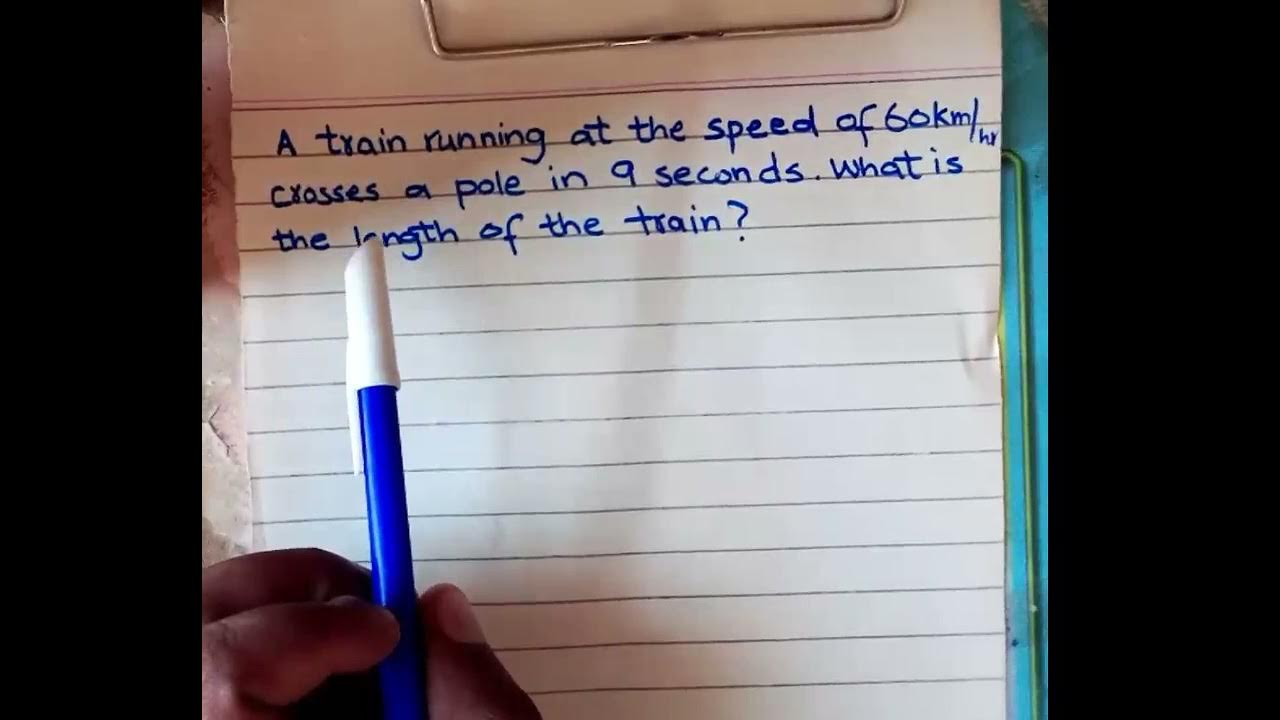 A train running at the speed of 60km/hr
crosses a pole in 9 seconds. What is
the length of the train?